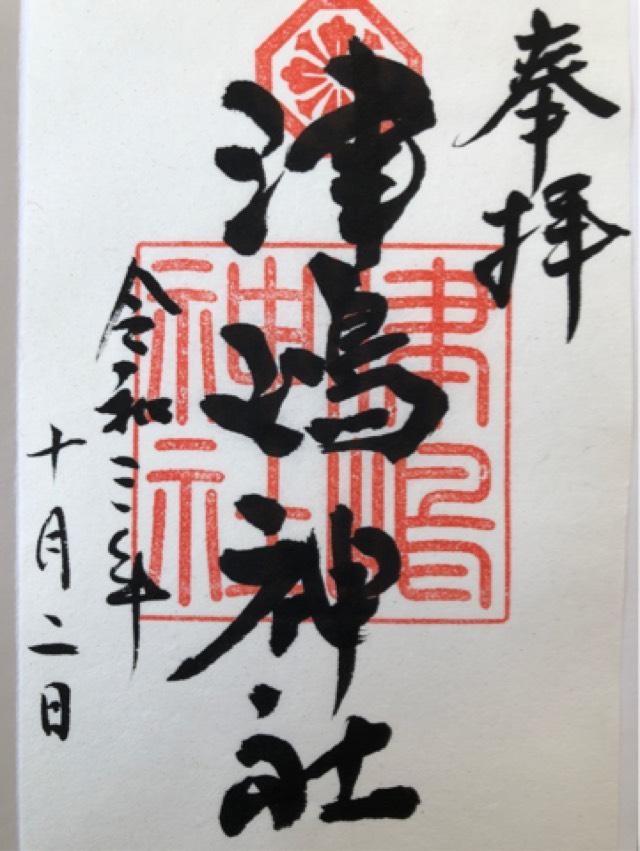 奉拝
津嶋神社
津嶋神社
令和三年
十月二日